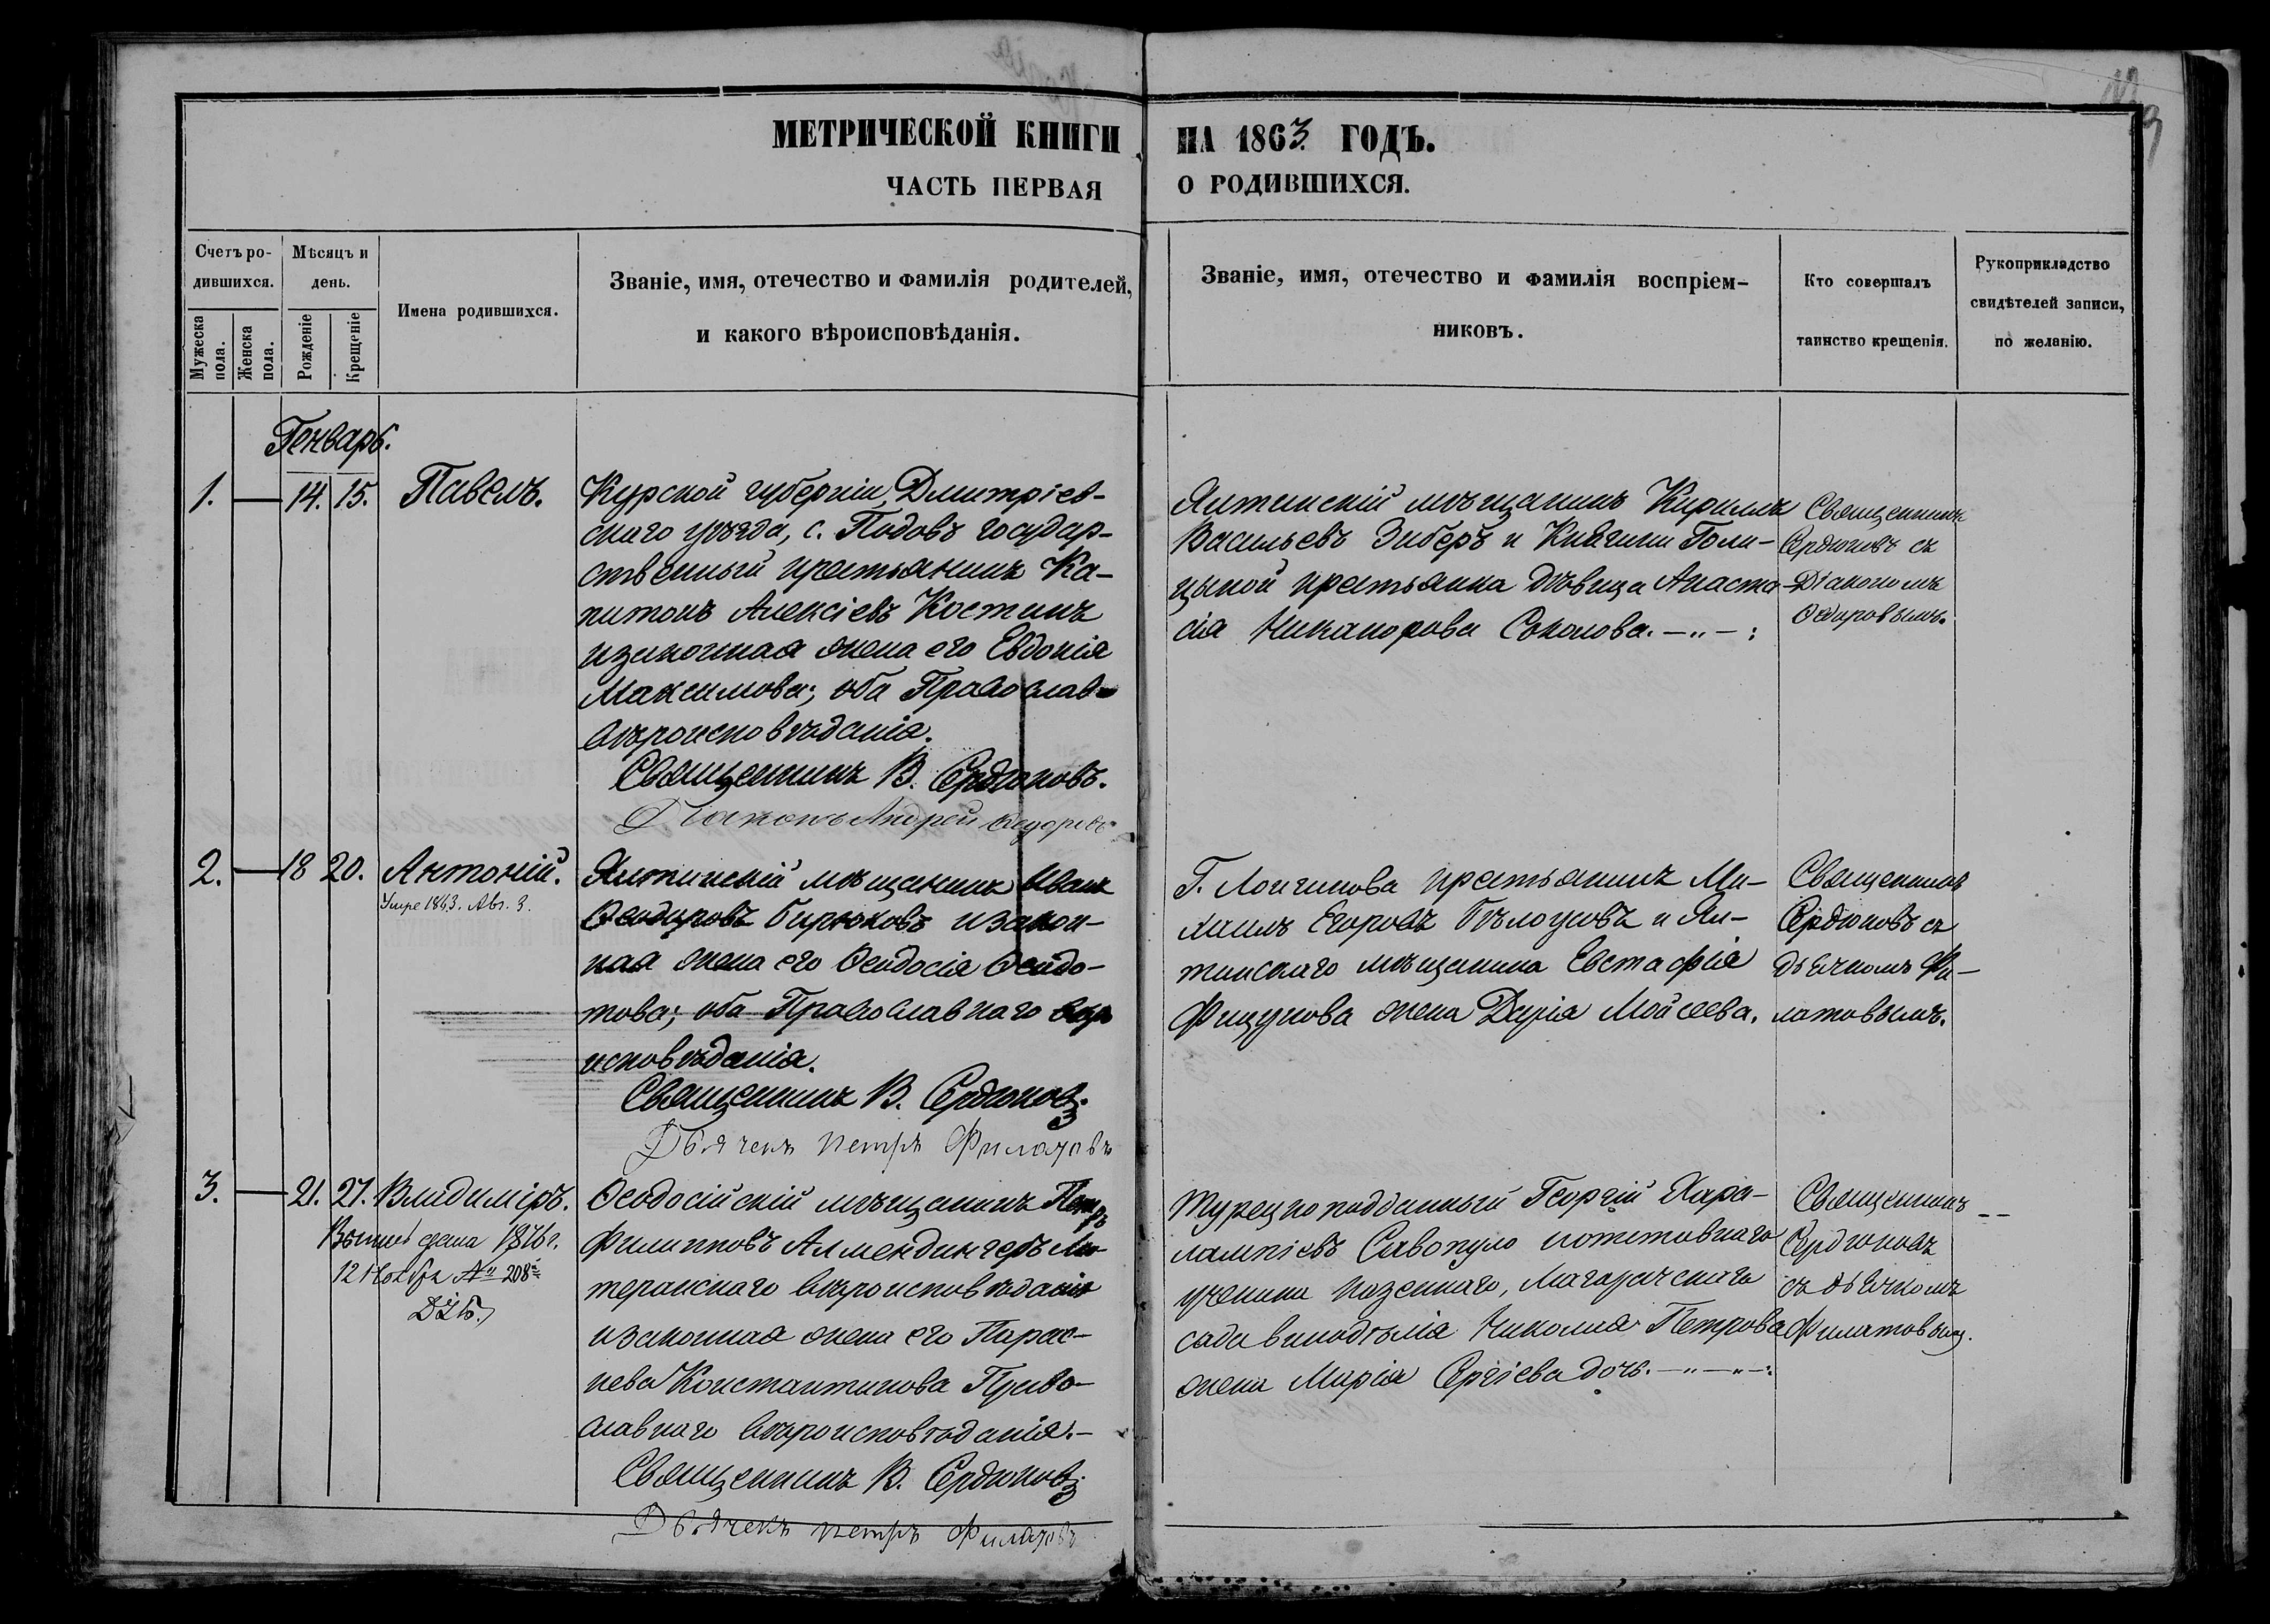 МЕТРИЧЕСКОЙ КНИГИ НА 1863 ГОДЪ.
ЧАСТЬ ПЕРВАЯ О РОДИВШИХСЯ.
Счетъ ро-
дившихся.
Мужеска
пола.
Женска
пола.
Мѣсяцъ и
день.
Рожденіе
Крещеніе
Имена родившихся.
Званіе, имя, отечество и фамилія родителей,
и какого вѣроисповѣданія.
Званіе, имя, отечество и фамилія воспріем-
никовъ.
Кто совершалъ
таинство крещенія.
Рукоприкладство
свидѣтелей записи,
по желанію.
Генварь.
1. — 14. 15. Павелъ.
Курской губерніи, Дмитріев-
скаго уѣзда, с. Подовъ государ-
ственный крестьянинъ Ка-
питонъ Алексіевъ Костинъ
изаконная жена его Евдокія
Максимова; оба Православ-
вѣроисповѣданія.
Священникъ В. Сердюковъ.
Діаконъ Андрей
Ялтинскій мѣщанинъ Кириллъ
Васильевъ Зиберъ и Княгини Голи-
цыной крестьянка дѣвица Анаста-
сія Никанорова Соколова. —„—:
Священникъ
Сердюковъ съ
Діакономъ
2. — 18 20. Антоній.
Умре 1863. Авг. 3.
Ялтинскій мѣщанинъ Иванъ
Ѳеодоровъ Бирюковъ изакон-
ная жена его Ѳеодосія Ѳеодо-
това; оба Православнаго вѣро
исповѣданія.
Священникъ В. Сердюковъ.
Дьячекъ петръ Филатовъ
Г. Лонгинова крестьянинъ Ми-
хаилъ Егоровъ Бѣлоусовъ и Ял-
тинскаго мѣщанина Евстафія
Фицунова жена Дарія Мойсеева.
Священникъ
Сердюковъ съ
дьячкомъ Фи-
латовымъ.
3. — 21. 27. Владиміръ.
дана 1876 г.
12 Ноября № 208
Ѳеодосійскій мѣщанинъ Петръ
Филипповъ Алмендингеръ Лю-
теранскаго вѣроисповѣданія
изаконная жена его Парас-
кева Константинова Право-
славнаго вѣроисповѣданія.—
Священникъ В. Сердюковъ.
Дьячекъ петръ Филатовъ
Турецкоподданный Георгій Хара-
лампіевъ Савопуло
ученика казеннаго, Магарачскаго
сада винодѣлія Николая Петрова
жена Марія Сергіева дочь. —„—„—:
Священникъ
Сердюковъ
съ дьячкомъ
Филатовымъ.